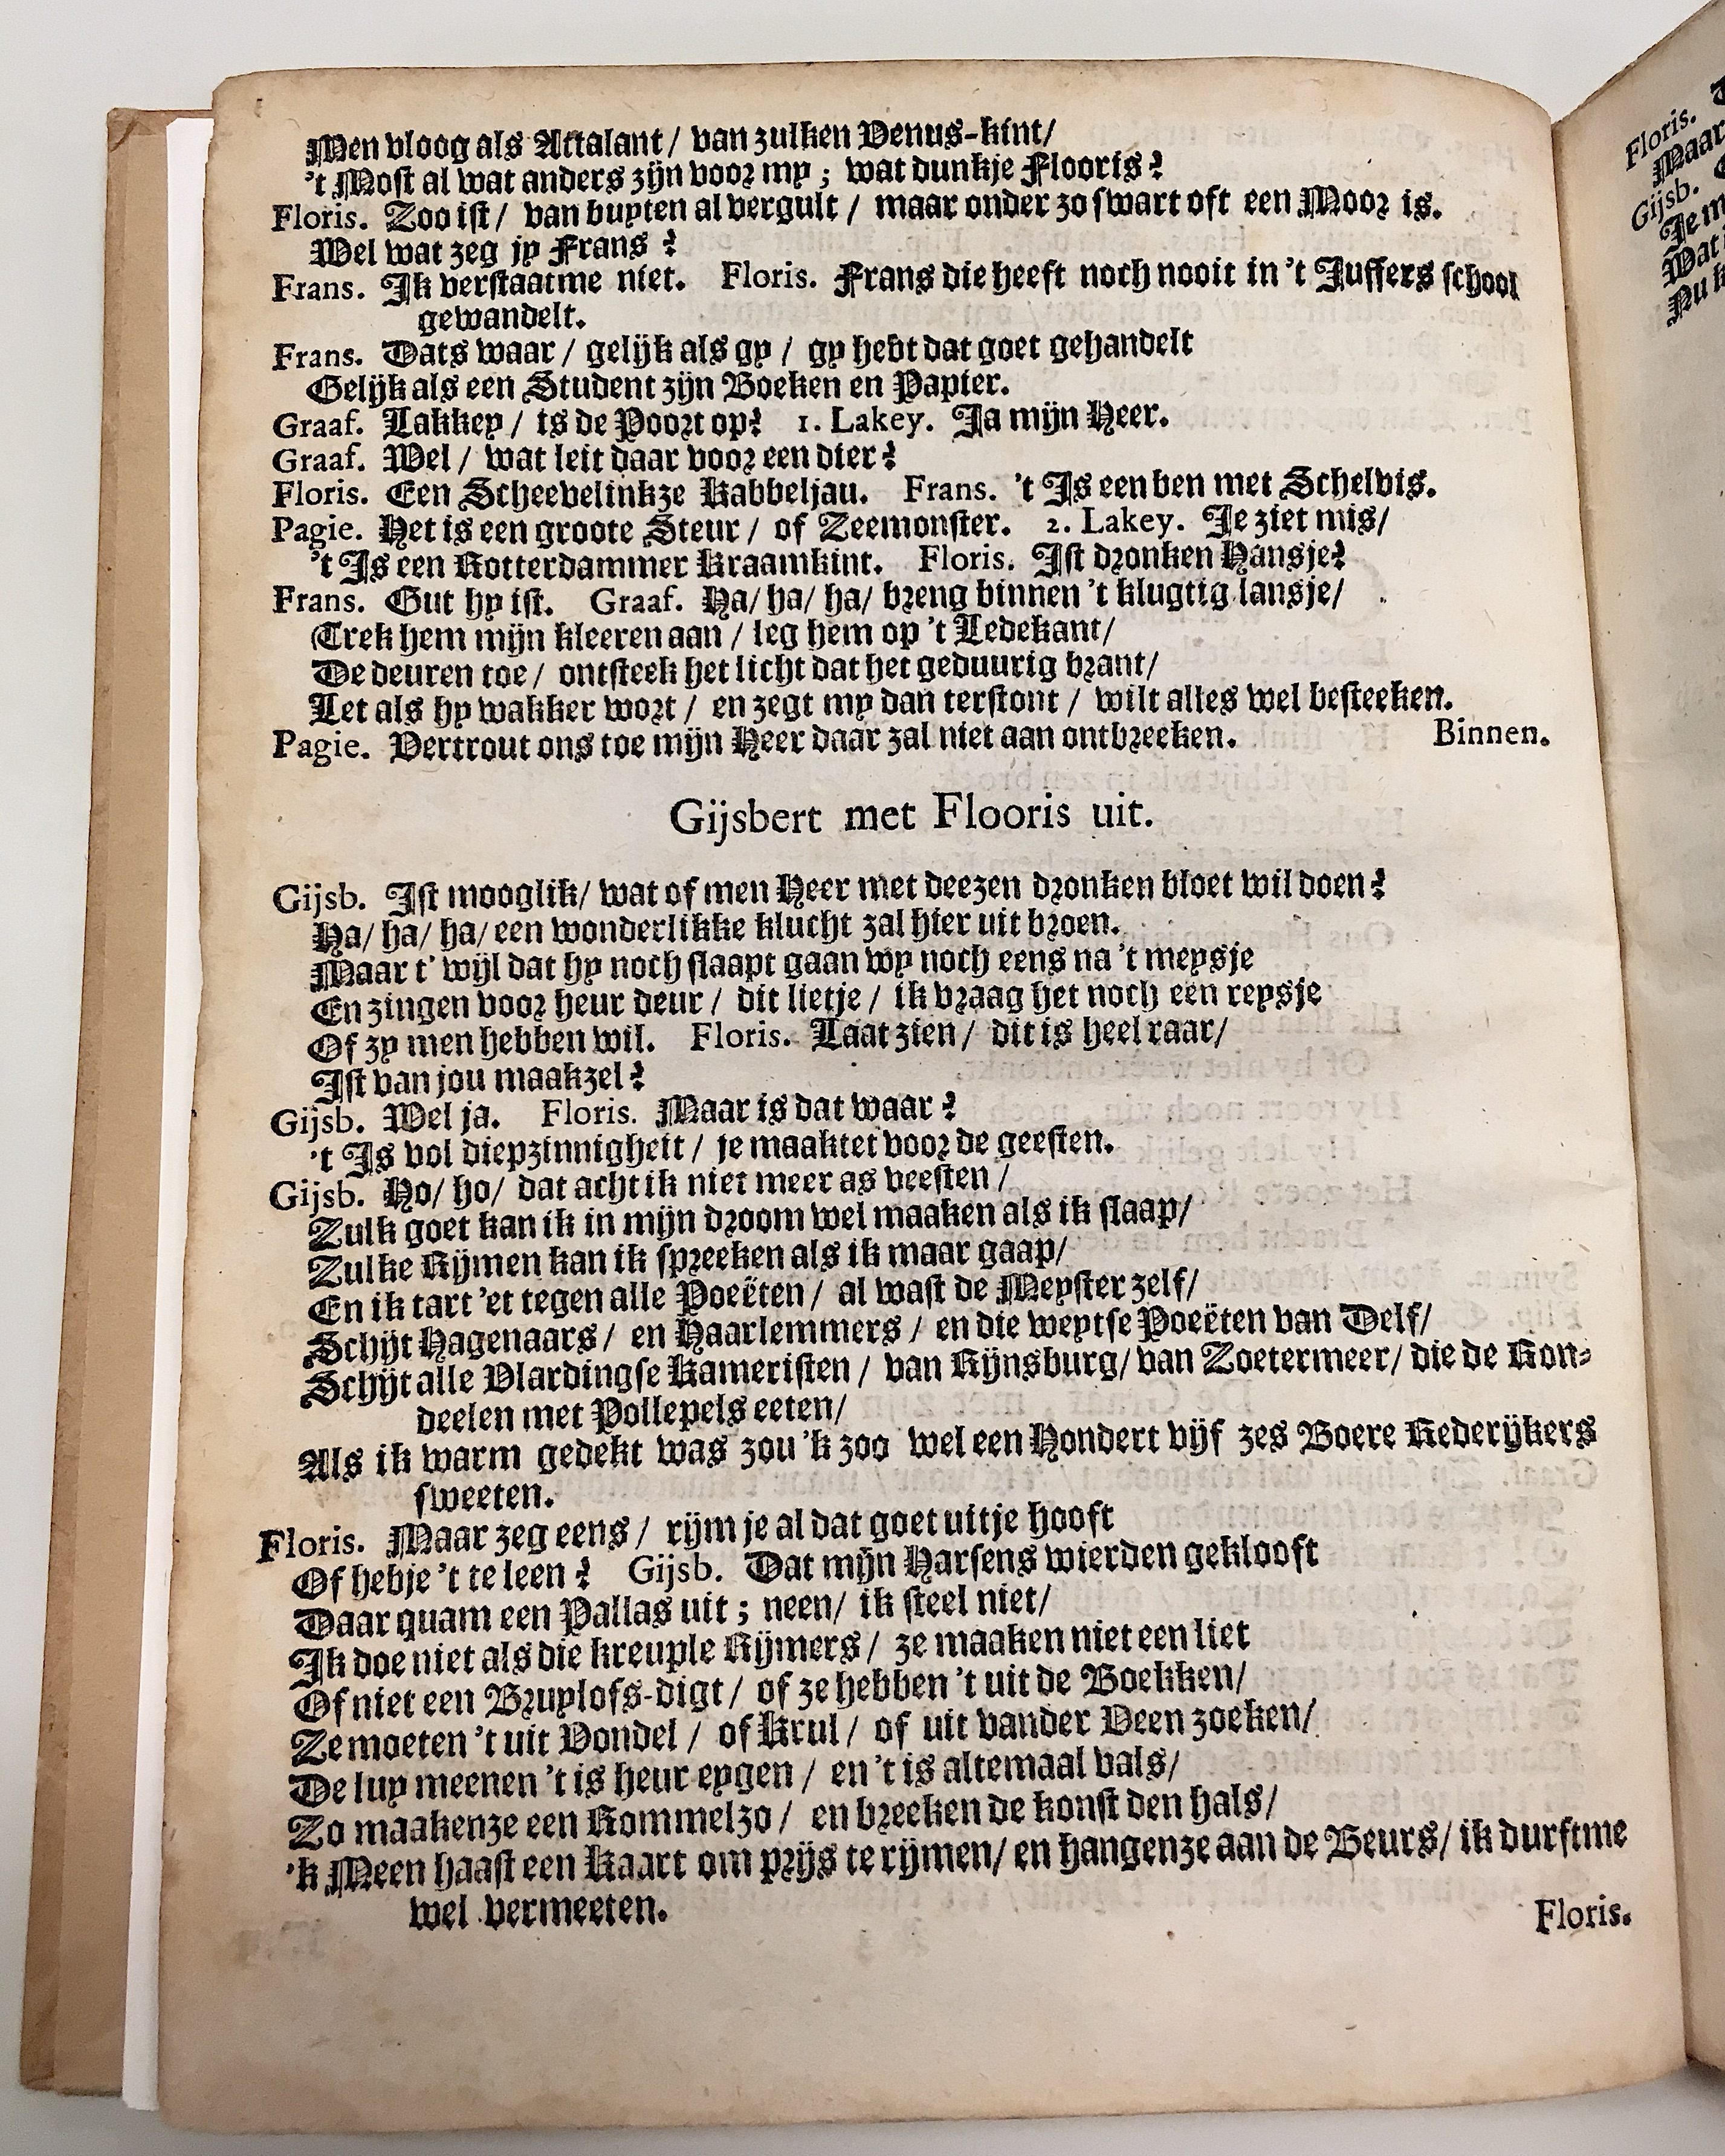 Men vloog als Attalant/ van zulken Venus-kint/
't Most al wat anders zijn voor my; wat dunkje Flooris?
Floris. Zoo ist/ van buyten al vergult/ maar onder zo swart oft een Moor is.
Wel wat zeg jy Frans?
Frans. Ik verstaatme niet. Floris. Frans die heeft noch nooit in 't Juffers school
gewandelt.
Frans. Dats waar/ gelijk als gy/ gy hebt dat goet gehandelt
Gelijk als een Student zijn Boeken en Papier.
Graaf. Lakkey/ is de Poort op? 1. Lakey. Ja mijn Heer.
Graaf. Wel/ wat leit daar voor een dier?
Floris. Een Scheevelinkze Kabbeljau. Frans. 't Is een ben met Schelvis.
Pagie. Het is een groote Steur/ of Zeemonster. 2. Lakey. Je ziet mis/
't Is een Rotterdammer Kraamkint. Floris. Ist dronken Hansje?
Frans. Gut hy ist. Graaf. Ha/ ha/ ha/ breng binnen 't klugtig lansje/
Trek hem mijn kleeren aan/ leg hem op 't Ledekant/
De deuren toe/ ontsteek het licht dat het geduurig brant/
Let als hy wakker wort/ en zegt my dan terstont/ wilt alles wel besteeken.
Pagie. Vertrout ons toe mijn Heer daar zal niet aan ontbreeken. Binnen.
Gijsbert met Flooris uit.
Gijsb. Ist mooglik/ wat of men Heer met deezen dronken bloet wil doen?
Ha/ ha/ ha/ een wonderlikke klucht zal hier uit broen.
Maar t' wijl dat hy noch slaapt gaan wy noch eens na 't meysje
En zingen voor heur deur/ dit lietje/ ik vraag het noch een reysje
Of zy men hebben wil. Floris. Laat zien/ dit is heel raar/
Ist van jou maakzel?
Gijsb. Wel ja. Floris. Maar is dat waar?
't Is vol diepzinnigheit/ je maaktet voor de geesten.
Gijsb. Ho/ ho/ dat acht ik niet meer as veesten/
Zulk goet kan ik in mijn droom wel maaken als ik slaap/
Zulke Rijmen kan ik spreeken als ik maar gaap/
En ik tart 'et tegen alle Poeëten/ al wast de Meyster zelf/
Schijt Hagenaars/ en Haarlemmers/ en die weytse Poeëten van Delf/
Schijt alle Vlardingse Kameristen/ van Rijnsburg/ van Zoetermeer/ die de Ron-
deelen met Pollepels eeten/
Als ik warm gedekt was zou 'k zoo wel een Hondert vijf zes Boere Rederijkers
sweeten.
Floris. Maar zeg eens/ rijm je al dat goet uitje hooft
Of hebje 't te leen? Gijsb. Dat mijn Harsens wierden geklooft
Daar quam een Pallas uit; neen/ ik steel niet/
Ik doe niet als die kreuple Rijmers/ ze maaken niet een liet
Of niet een Bruylofs-digt/ of ze hebben 't uit de Boekken/
Ze moeten 't uit Vondel/ of Krul/ of uit vander Veen zoeken/
De luy meenen 't is heur eygen/ en 't is altemaal vals/
Zo maakenze een Rommelzo/ en breeken de konst den hals/
'k Meen haast een Kaart om prijs te rijmen/ en hangenze aan de Beurs/ ik durftme
wel vermeeten.
Floris.
Floris.
Maar
Gijsb.
Je m
Wat
Nu k